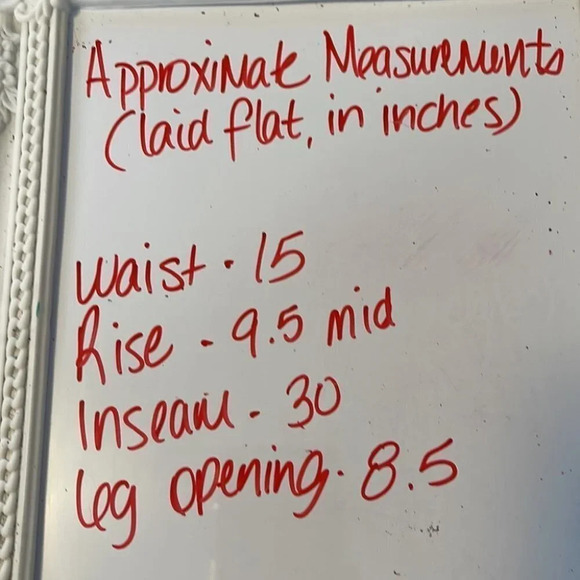 Approximate Measurements
(laid flat, in inches)
Waist - 15
Rise - 9.5 mid
Inseam - 30
Leg opening - 8.5